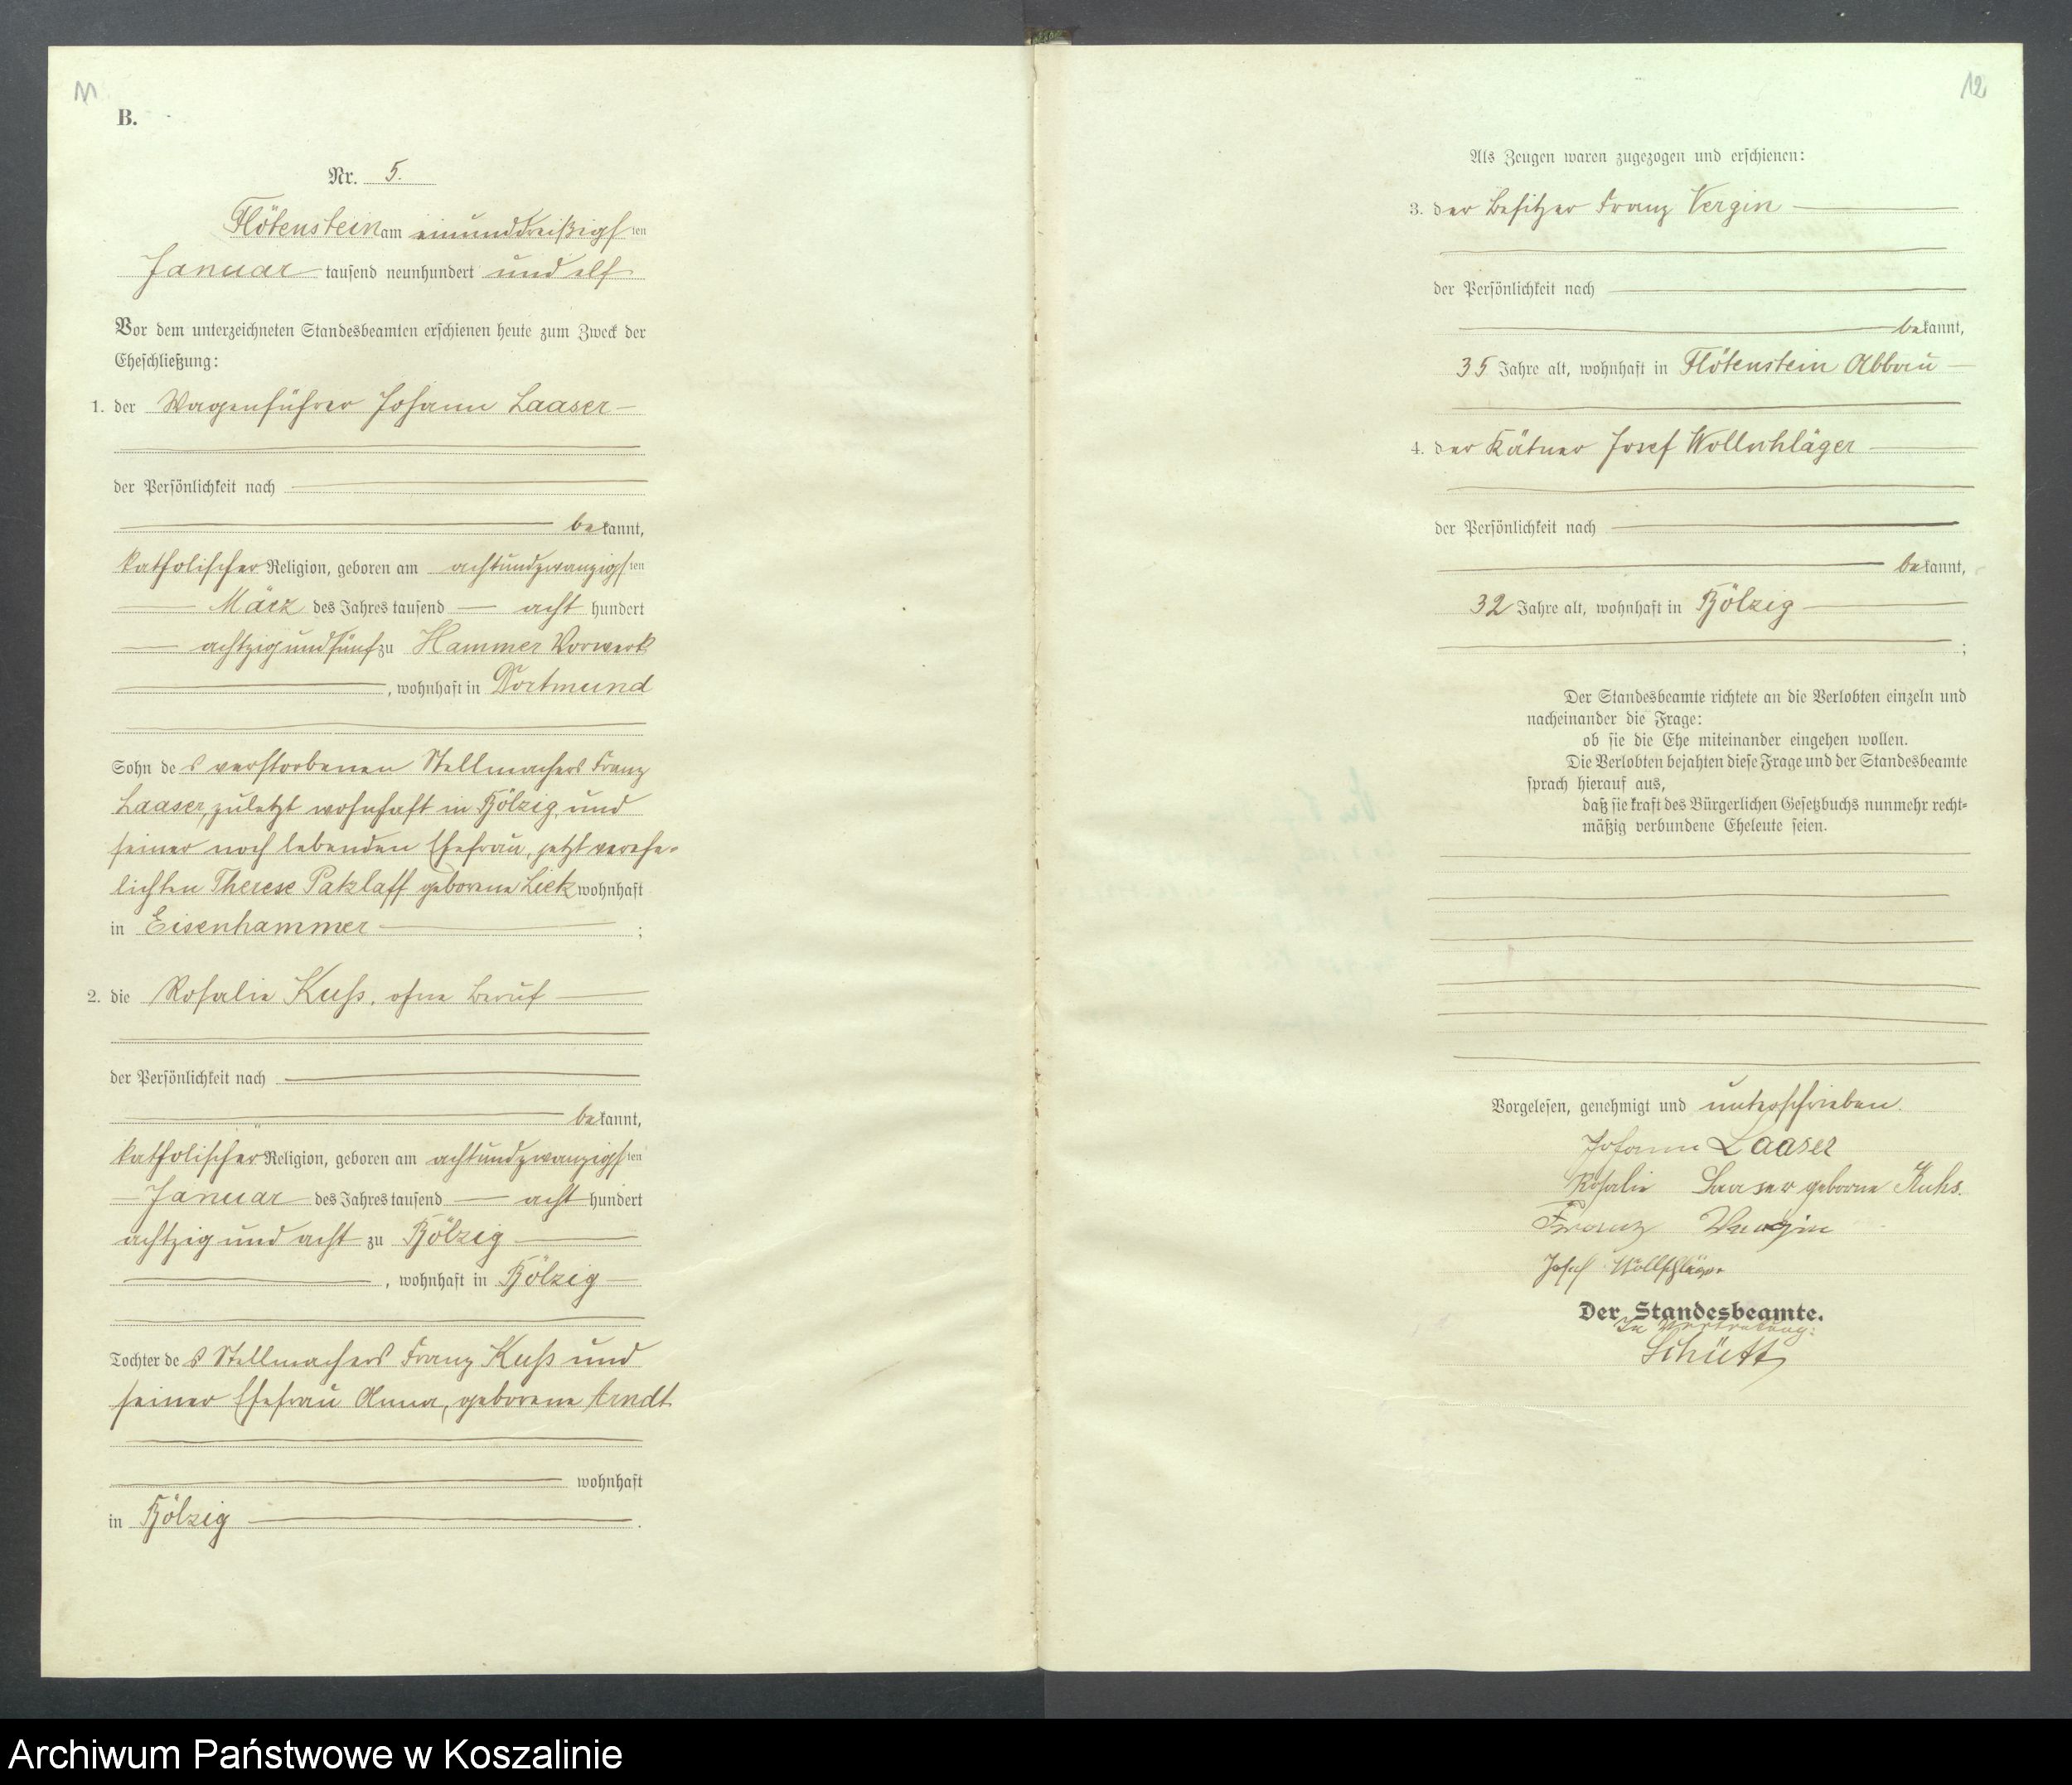 B.
Nr. 5.
Flötenstein am einunddreißigsten
Januar tausend neunhundert und elf
Vor dem unterzeichneten Standesbeamten erschienen heute zum Zweck der
Eheschließung:
1. der Wagenführer Johann Laaser
der Persönlichkeit nach
bekannt,
katholischer Religion, geboren am achtundzwanzigsten
März des Jahres tausend acht hundert
achtzig und fünf zu Hammer Vorwerk
, wohnhaft in Dortmund
Sohn des verstorbenen Stellmachers Franz
Laaser, zuletzt wohnhaft in Fölzig, und
seiner noch lebenden Ehefrau, jetzt verehe-
lichten Therese Patzlaff geborene Lietz wohnhaft
in Eisenhammer ;
2. die Rosalie Kuß, ohne Beruf
der Persönlichkeit nach
bekannt,
katholischer Religion, geboren am achtundzwanzigsten
Januar des Jahres tausend acht hundert
achtzig und acht zu Fölzig
, wohnhaft in Fölzig
Tochter des Stellmachers Franz Kuß und
seiner Ehefrau Anna, geborene Arndt
wohnhaft
in Fölzig .
12
Als Zeugen waren zugezogen und erschienen:
3. der Besitzer Franz Vergin
der Persönlichkeit nach
bekannt,
35 Jahre alt, wohnhaft in Flötenstein Abbau
4. der Kätner Josef Wollschläger
der Persönlichkeit nach
bekannt,
32 Jahre alt, wohnhaft in Fölzig
;
Der Standesbeamte richtete an die Verlobten einzeln und
nacheinander die Frage:
ob sie die Ehe miteinander eingehen wollen.
Die Verlobten bejahten diese Frage und der Standesbeamte
sprach hierauf aus,
daß sie kraft des Bürgerlichen Gesetzbuchs nunmehr recht-
mäßig verbundene Eheleute seien.
Vorgelesen, genehmigt und unterschrieben.
Johann Laaser
Rosalie Laaser geborne Kuhs.
Franz Vergin
Josef Wollschläger
Der Standesbeamte.
In Vertretung:
Schütt
Archiwum Państwowe w Koszalinie